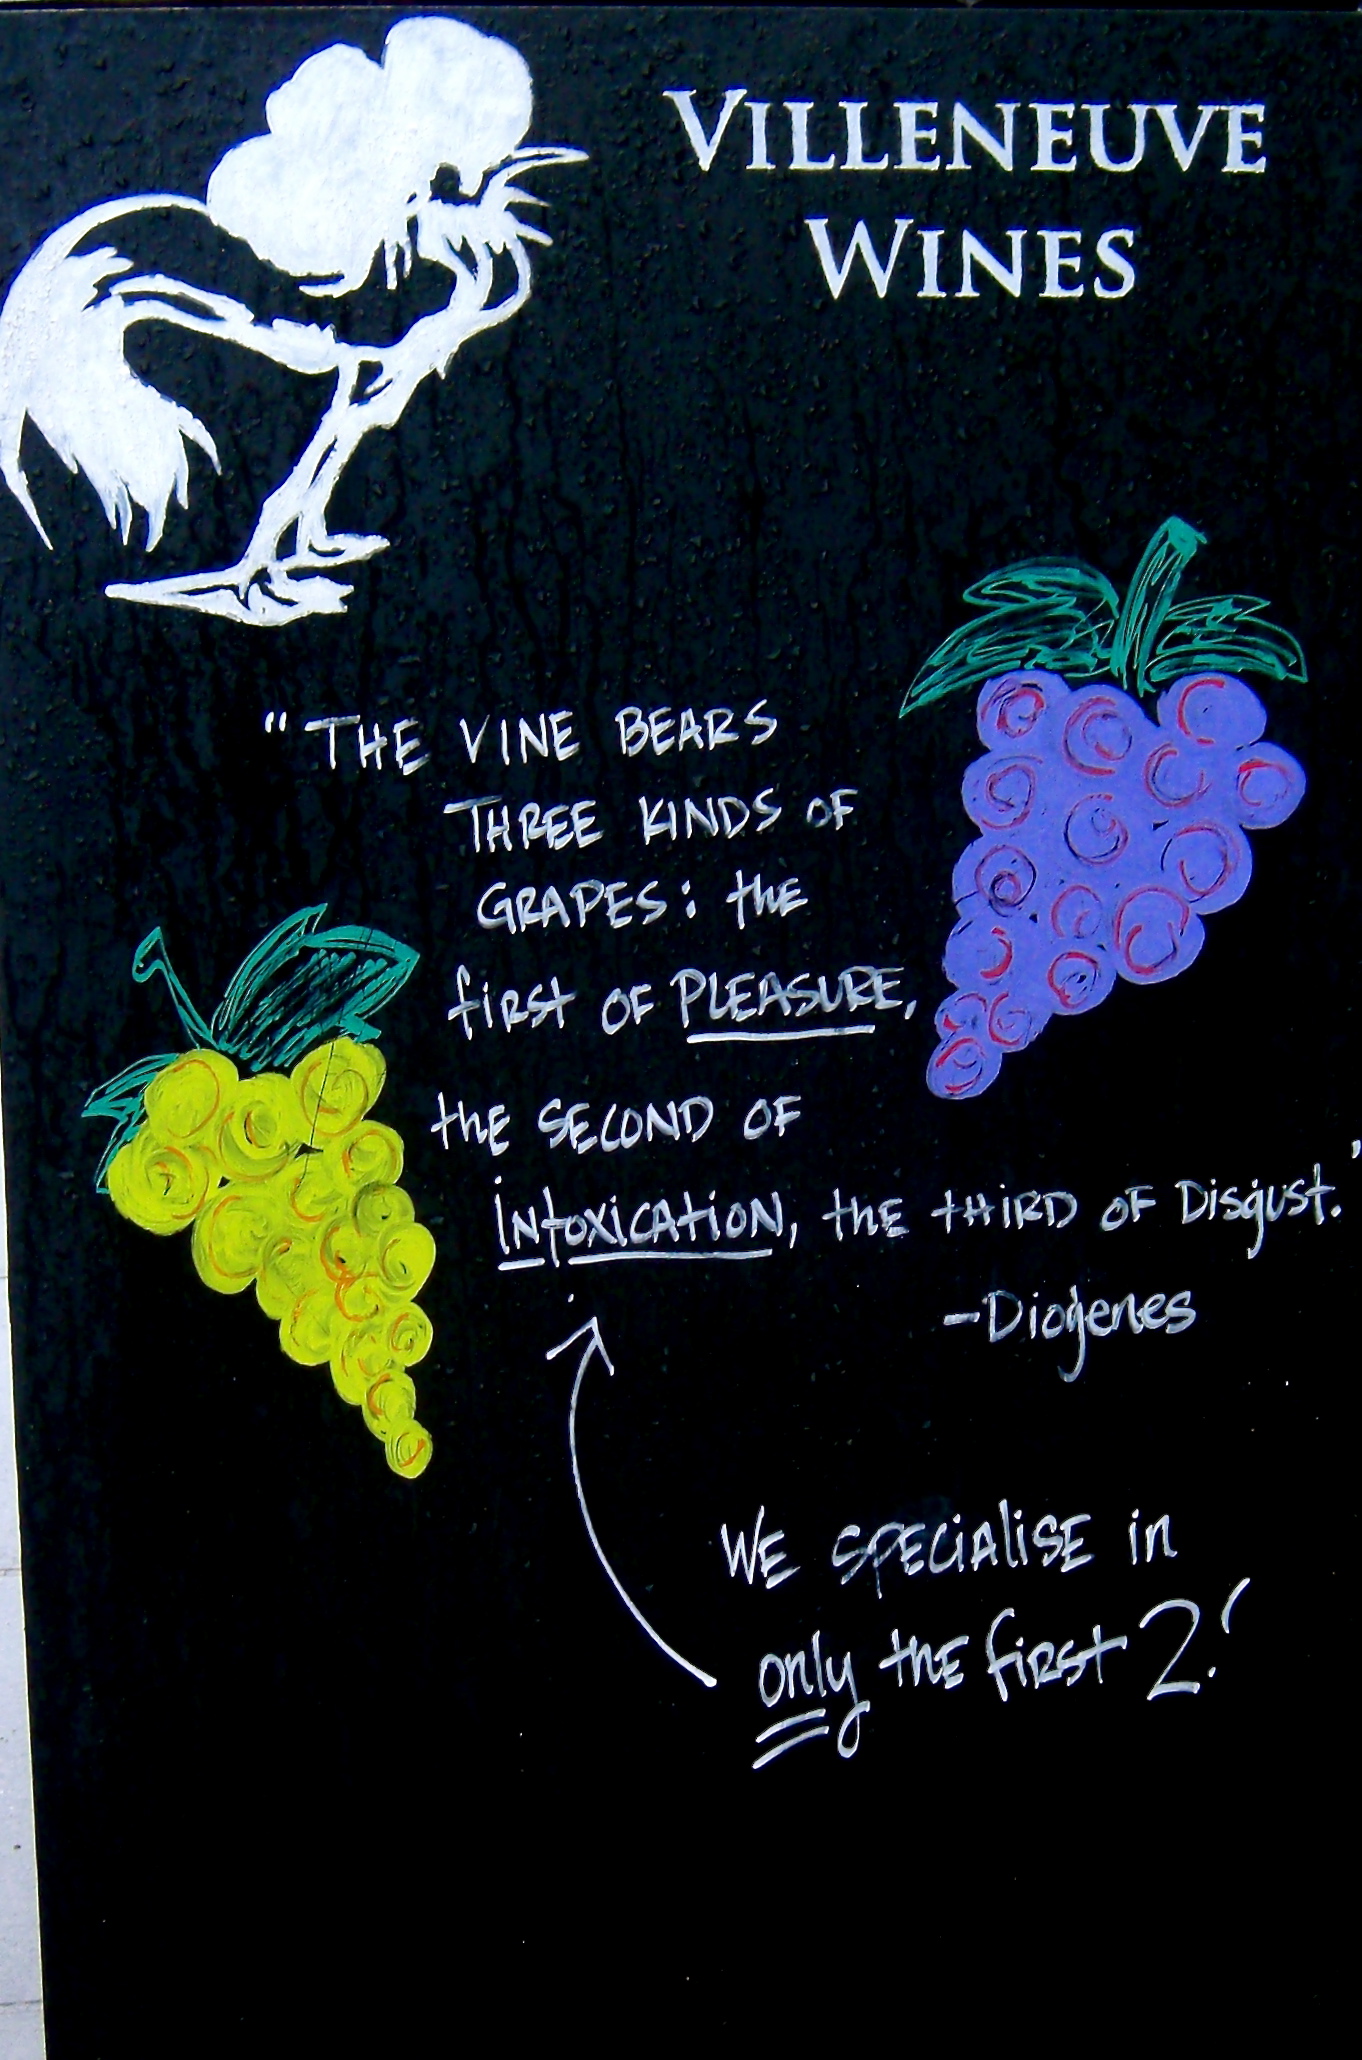 VILLENEUVE
WINES
"THE VINE BEARS
THREE KINDS OF
GRAPES: the
first OF PLEASURE,
the SECOND OF
INtoxicAtioN, the thiRD OF Disgust."
-Diogenes
WE SPECiAliSE in
only the first 2!